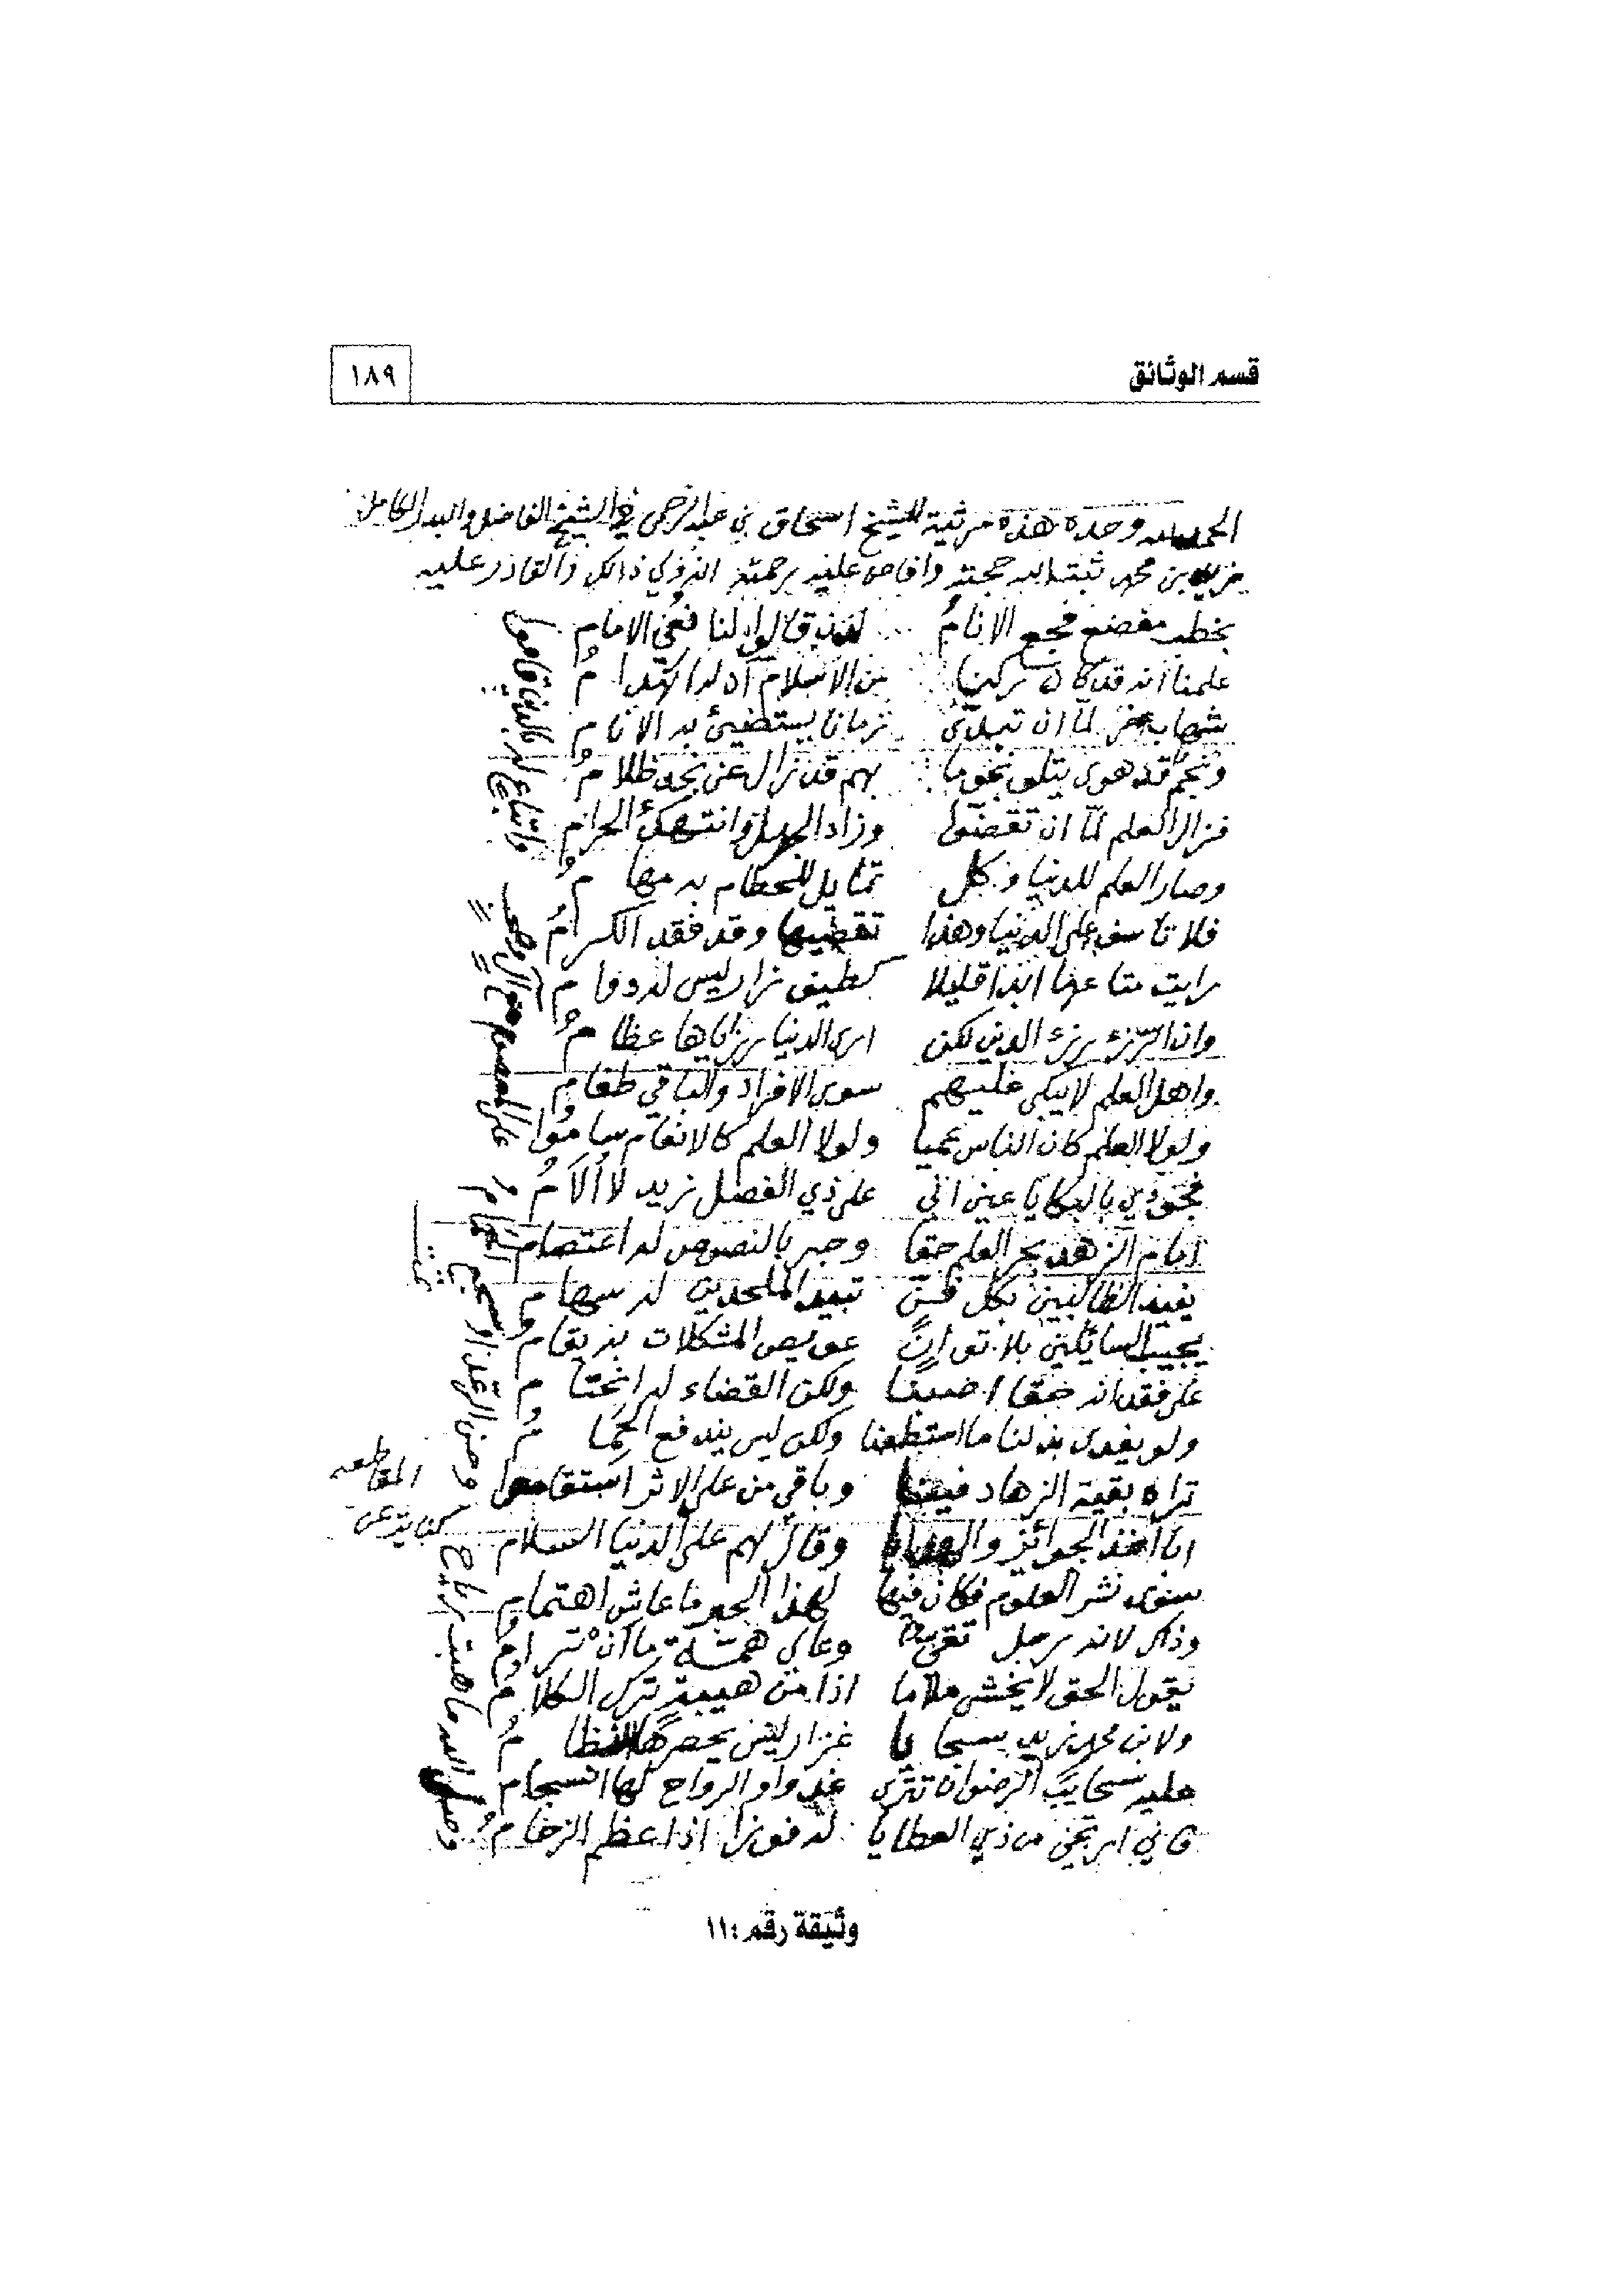 قسم الوثائق
١٨٩
الحمد لله وحده هذه مرثية للشيخ اسحاق بن عبد الرحمن في الشيخ الفاضل والبدر الكامل
زيد بن محمد ثبته الله حجته وافاض عليه برحمته انه ولي ذالك والقادر عليه
بخطب مفضع فجع الانامُ لقد قالوا لنا نعي الامام
علمنا انه قد كان ركنا من الاسلام آن له انهدامُ
شهاب خر لمّا ان تبدّى زمانا يستضيئ به الانام
ونجم قد هوى يتلو نجوما بهم قد زال عن نجد ظلامُ
فزال العلم لمّا ان تقضّوا وزاد الجهل وانتهك الحرام
وصار العلم للدنيا وكل تمايل للحطام به
فلا تاسف على الدنيا وهذا تقضيها وقد فقد الكرامُ
رايت متاعها ابدا قليلا كطيف زار ليس له دوام
وان الرزء رزء الدين لكن ارى الدنيا رزاياها عظامُ
واهل العلم لا يبكي عليهم سوى الافراد والباقي طغام
ولولا العلم كان الناس عميا ولولا العلم كالانعام ساموا
فجودي بالبكا يا عين اني على ذي الفضل زيد لا اُلاَمُ
امام الزهد بحر العلم حقا وحبر بالنصوص له اعتصام
يفيد الطالبين بكل فنّ تبيد الملحدين له سهام
يجيب السائلين بلا توانٍ عويص المشكلات به يقام
على فقدانه حقا اصبنا ولكن القضاء له انحتام
ولو يفدى بذلنا ما استطعنا ولكن ليس يندفع الحِمَامُ
تراه بقية الزهاد فينا وباقي من على الاثر استقاموا
ابا اخذ الجوائز والهدايا وقال لهم على الدنيا السلام
سوى نشر العلوم فكان فيها لهذا الحبر ما عاش اهتمام
وذاك لانه رجل تقيّ وعالي همّة ما ان ترامُ
يقول الحق لا يخشى ملاما اذا من هيبة ترك الكلامُ
ولابن محمد زيد سجايا غزار ليس يحصرها النظامُ
عليه سحايب الرضوان تترى غدوا والرواح لها انسجام
فاني ارتجي من ذي العطايا له فوزا اذا عظم الزحامُ
وصلى الله ما هبت رياح
على المعصوم مع آل وصحب
واتباع له بالدين قاموا
وثيقة رقم: ١١